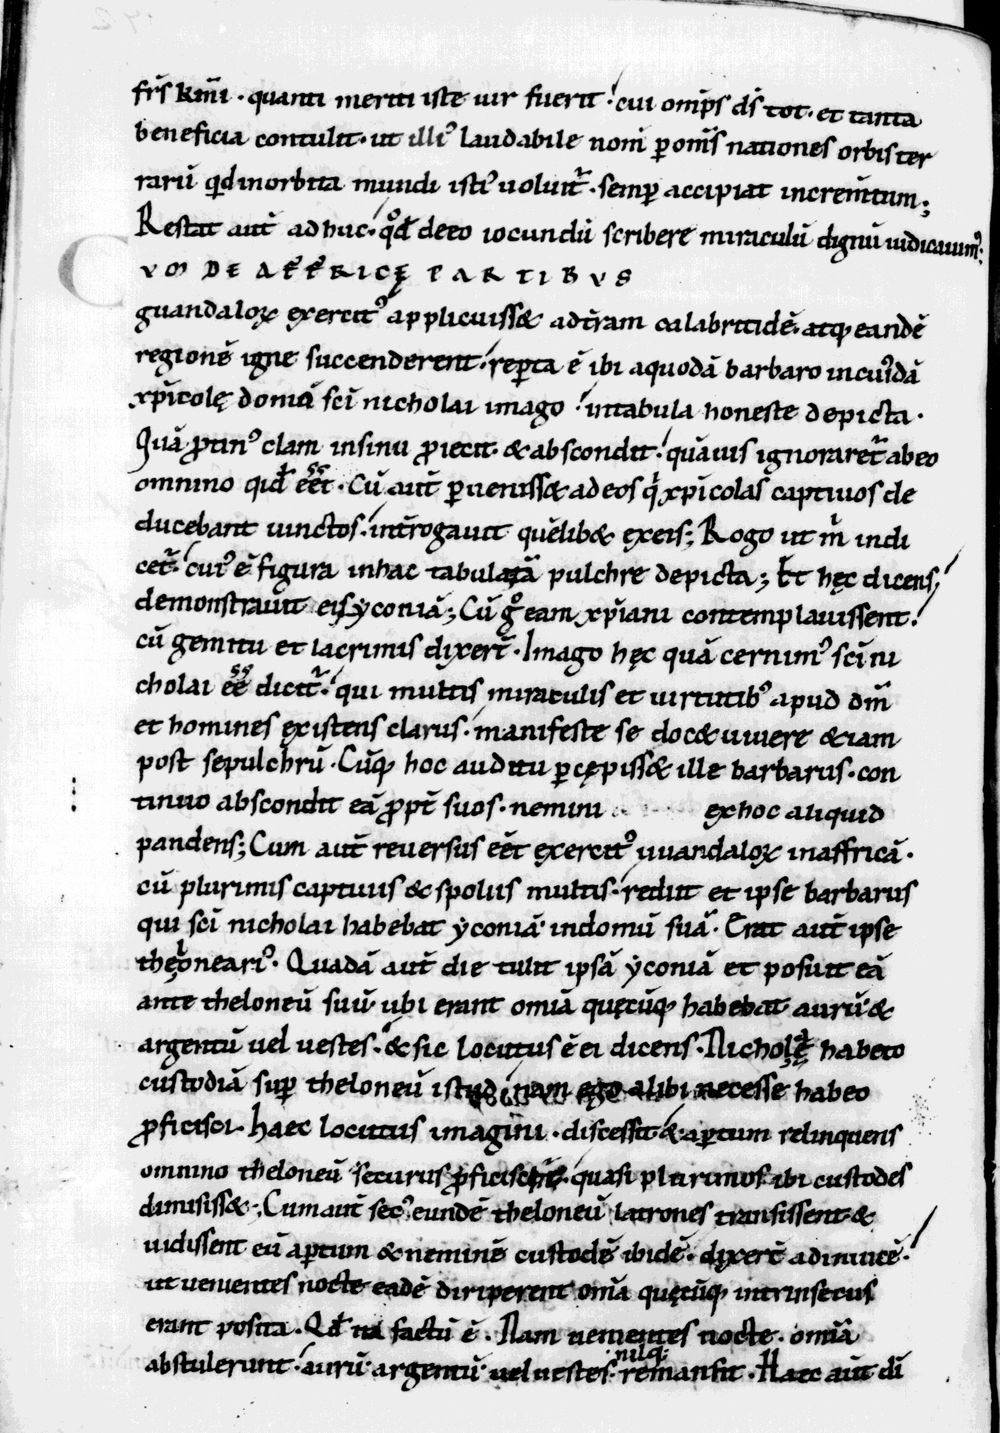 frs̄ km̄i · quanti meriti iste uir fuerit · cui omp̄s ds̄ tot · et tanta
beneficia contulit · ut illi᾽ laudabile nom̄ ꝑ om̄s nationes orbis ter
rarū qd̄ in orbita mundi isti᾽ uoluit᷑ · semꝑ accipiat increm̄tum ;
Restat aut̄ ad huc · qd̄ de eo iocundū scribere miraculū dignū iudicauim᾽ ;
CVM DE AFFRICĘ PARTIBVS
guandaloꝝ exercit᾽ applicuiss& ad t̄ram calabritidē · atq; eandē
regionē igne succenderent · reꝑta ē ibi a quodā barbaro in cui᾽dā
xp̄icolę domū sc̄i nicholai imago · in tabula honeste depicta ·
Quā ꝓtin᾽ clam in sinu ꝓiecit · & abscondit · quāuis ignoraret᷑ ab eo
omnino qid eēt · Cū aut̄ ꝑueniss& ad eos q̇ xp̄icolas captiuos de
ducebant uinctos · int̄rogauit quēlib& ex eis ; Rogo ut m̄ indi
cet᷑ · cui᾽ ē figura in hac tabula tā pulchre depicta ; Et hęc dicens ;
demonstrauit eis yconiā ; Cū g̊ eam xp̄iani contemplauissent ·
cū gemitu et lacrimis dixer̄t · Imago hęc quā cernim᾽ sc̄i ni
cholai eē dicit᷑ · qui multis miraculis et uirtutib᾽ apud dm̄
et homines existens clarus · manifeste se doc& uiuere &iam
post sepulchrū · Cūq; hoc auditu ꝑcępiss& ille barbarus · con
tinuo abscondit eā ꝓpt̄ suos · nemini ex hoc aliquid
pandens ; Cum aut̄ reuersus eēt exercit᾽ uuandaloꝝ in affricā ·
cū plurimis captiuis & spoliis multis · rediit et ipse barbarus
qui sc̄i nicholai habebat yconiā in domū suā · Erat aut̄ ipse
theloneari᾽ · Quadā aut̄ die tulit ipsā yconiā et posuit eā
ante theloneū suū · ubi erant omīa quęcūq; habebat aurū · &
argentū uel uestes · & sic locutus ē ei dicens · Nicholę habeto
custodiā suꝑ theloneū istud nam ego alibi necesse habeo
ꝓficisci · haec locutus imagini · discessit · & aꝑtum relinquens
omnino theloneū securus ꝓficiscit᷑ · quasi plurimos ibi custodes
dimisiss& · Cum aut̄ sec᾽ eundē theloneū latrones transissent &
uidissent eū aꝑtum & neminē custodē ibidē · dixer̄t ad inuicē ·
ut uenientes nocte eadē diriperent omīa quęcūq; intrinsecus
erant posita · Qd̄ ita factū ē · Nam uenientes nocte · omīa
abstulerunt · aurū argentū uel uestes · nilq; remansit · Haec aut̄ dū